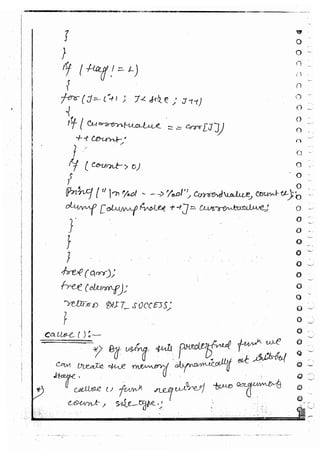 }
}
if ( flag != 1)
{
for (J = i+1 ; J < size ; J++)
{
if ( currentvalue == arr[J])
++count;
}
if ( count > 0)
{
printf ( "\n %d - -> %d", currentvalue, count+1);
dump [dumpIndex++] = currentvalue;
}
}
}
free (arr);
free (dump);
return EXIT_SUCCESS;
}
calloc ( ):—
*) By using this predefined funⁿ we
can create the memory dynamically at
stage.
*) calloc () funⁿ required two arguments
count, size_type.;